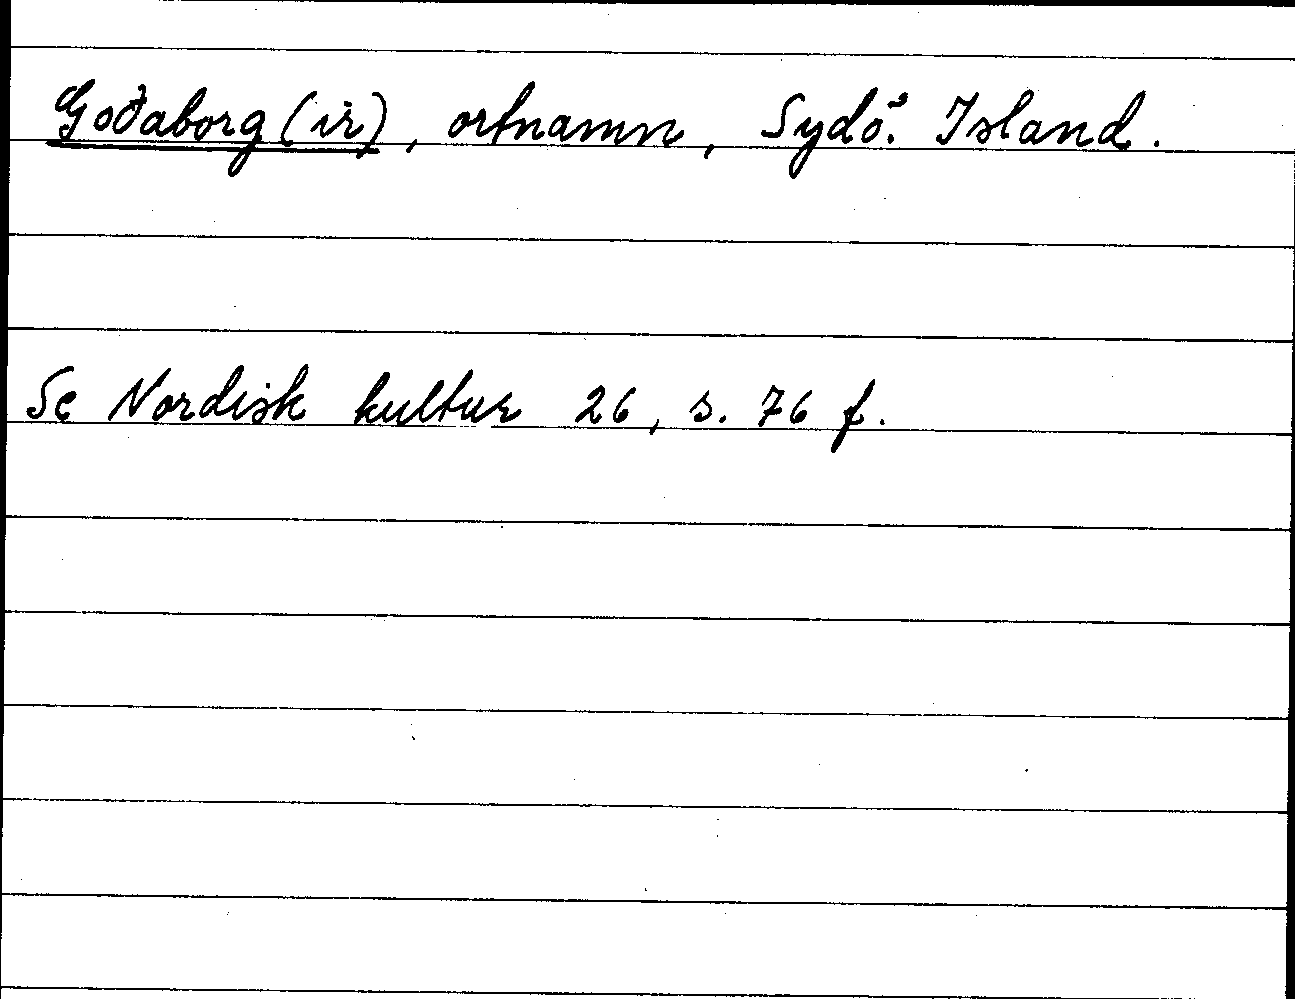 Goðaborg (ir), ortnamn, Sydö: Island.
Se Nordisk kultur 26, s. 76 f.